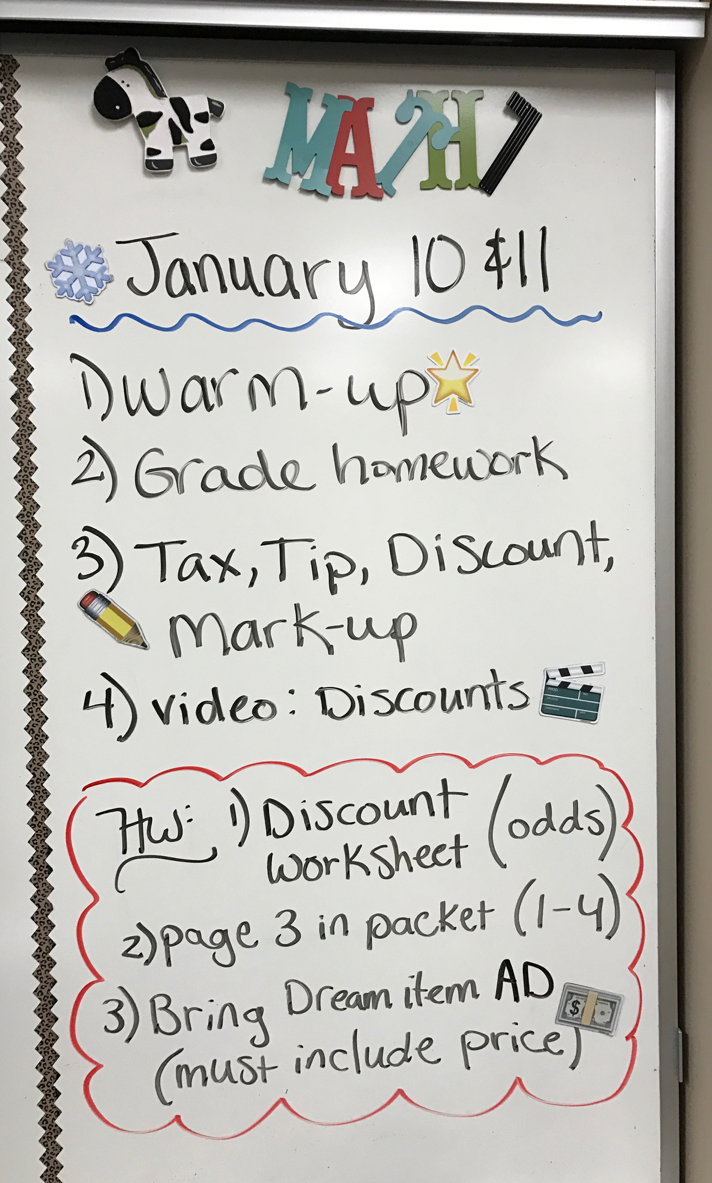 MATH 7
January 10 & 11
1) Warm-up
2) Grade homework
3) Tax, Tip, Discount,
Mark-up
4) Video: Discounts
HW: 1) Discount (odds)
Worksheet
2) page 3 in packet (1-4)
3) Bring Dream item AD
(must include price)
$